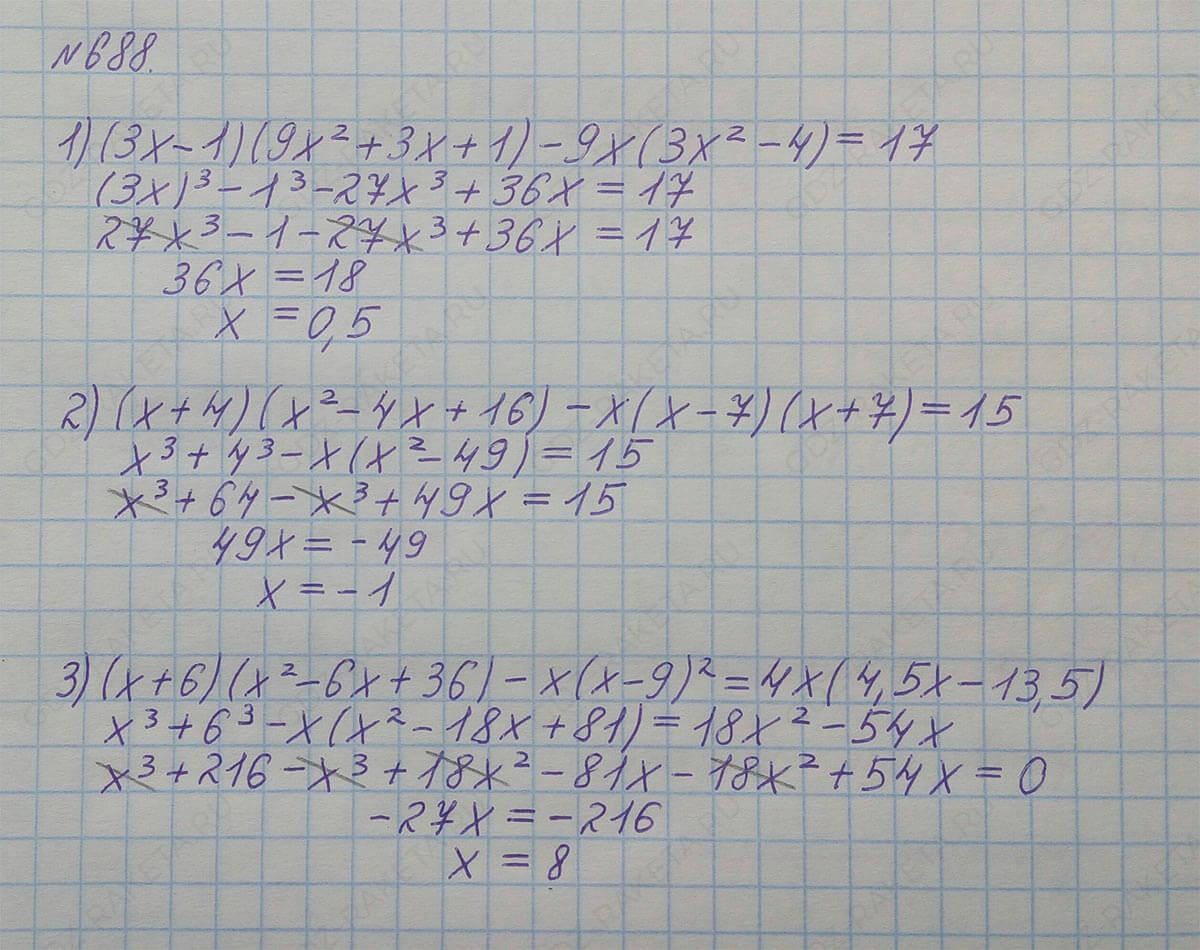 №688.
1) (3x-1)(9x²+3x+1)-9x(3x²-4)=17
(3x)³-1³-27x³+36x=17
27x³-1-27x³+36x=17
36x=18
x=0,5
2) (x+4)(x²-4x+16)-x(x-7)(x+7)=15
x³+4³-x(x²-49)=15
x³+64-x³+49x=15
49x=-49
x=-1
3) (x+6)(x²-6x+36)-x(x-9)²=4x(4,5x-13,5)
x³+6³-x(x²-18x+81)=18x²-54x
x³+216-x³+18x²-81x-18x²+54x=0
-27x=-216
x=8